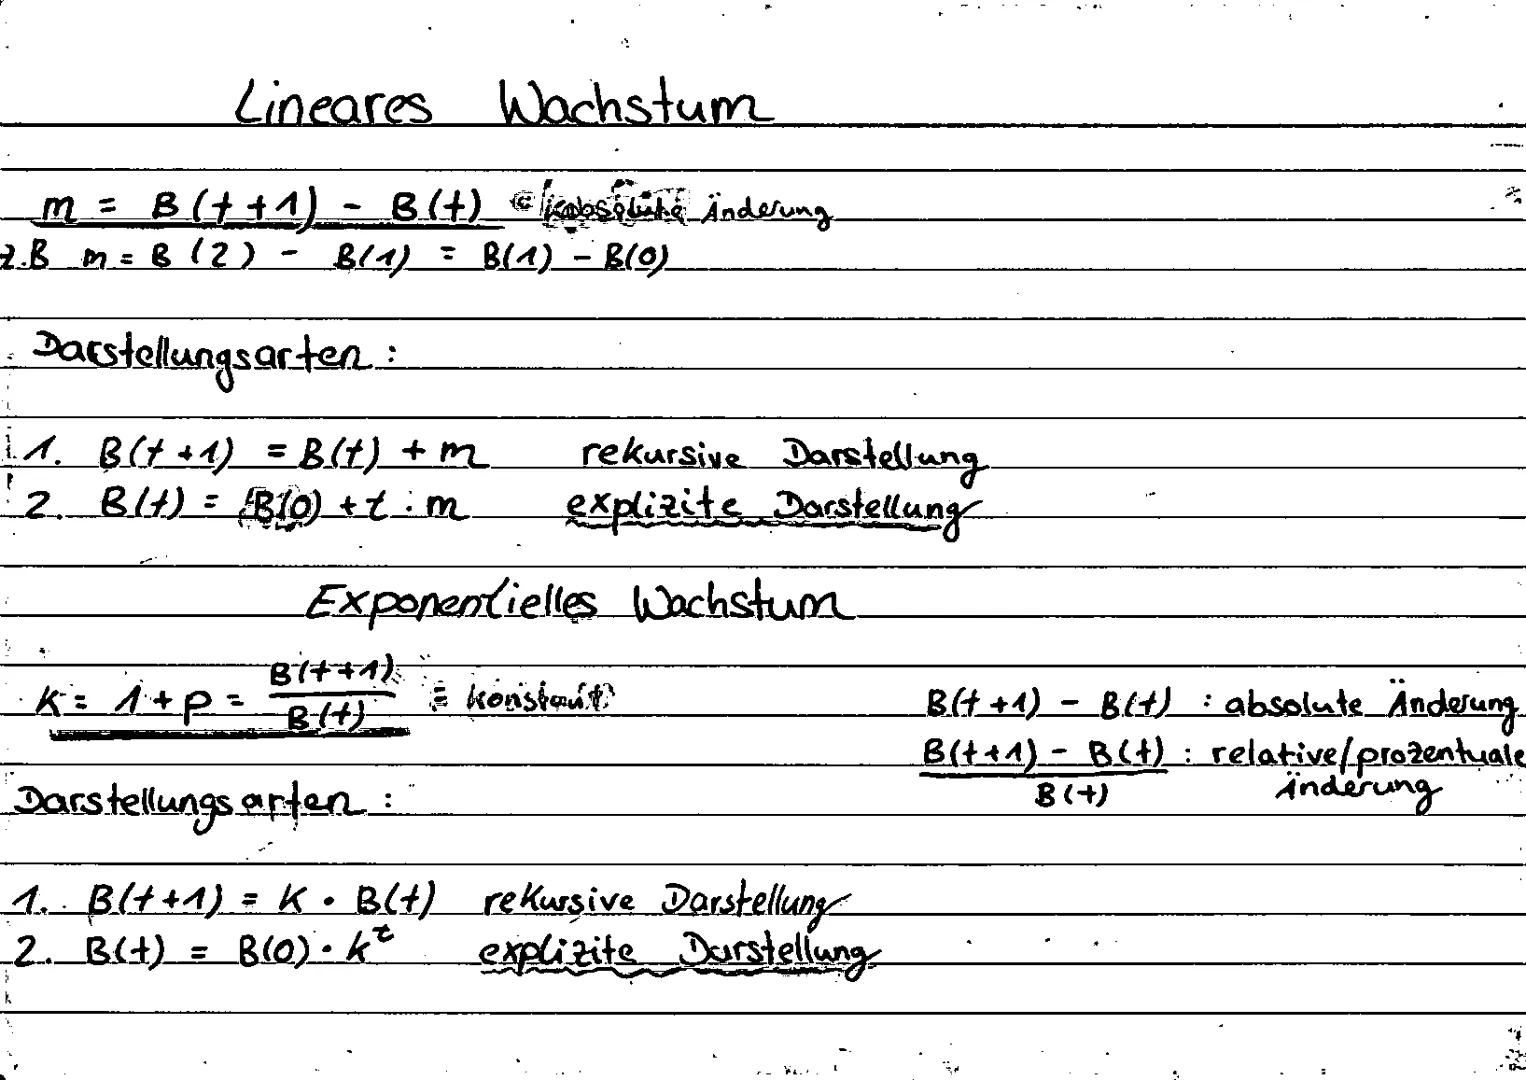 Lineares Wachstum
m = B(t+1) - B(t) absolute Änderung
z.B m = B(2) - B(1) = B(1) - B(0)
Darstellungsarten:
1. B(t+1) = B(t) + m rekursive Darstellung
2. B(t) = B(0) + t · m explizite Darstellung
Exponentielles Wachstum
K = 1+p = B(t+1) / B(t) = konstant
B(t+1) - B(t) : absolute Änderung
B(t+1) - B(t) / B(t) : relative/prozentuale
Änderung
Darstellungsarten:
1. B(t+1) = K · B(t) rekursive Darstellung
2. B(t) = B(0) · k^t explizite Darstellung